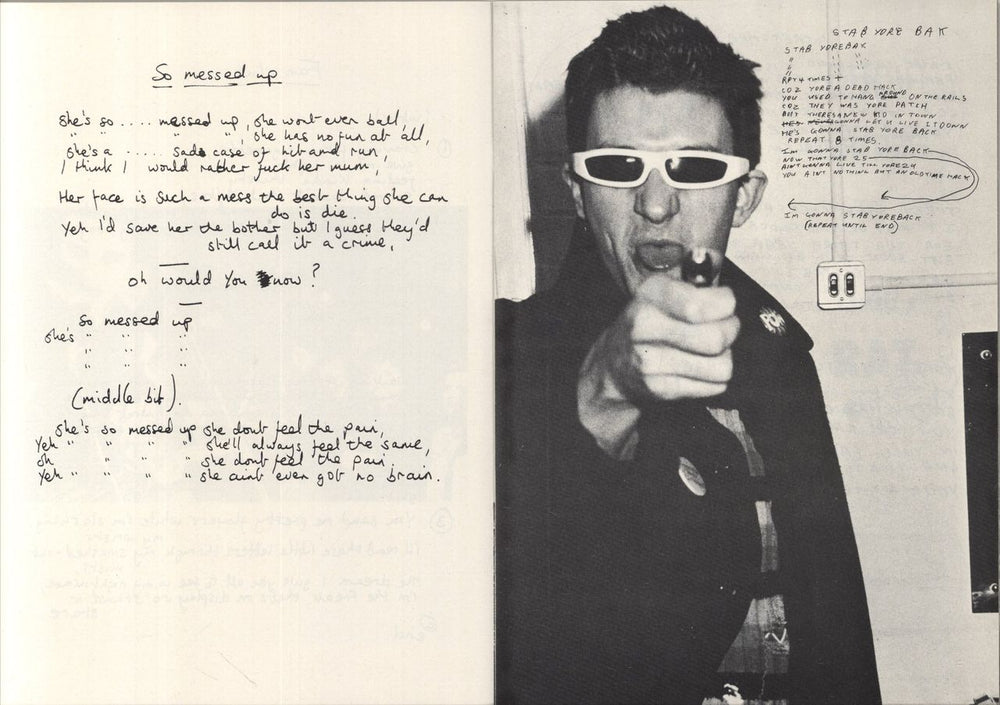 So messed up
She's so .... messed up, she wont ever ball,
" " .... " ", she has no fun at all,
She's a ..... sad case of hit and run,
I think I would rather fuck her mum,
Her face is such a mess the best thing she can
do is die.
Yeh I'd save her the bother but I guess they'd
still call it a crime,
oh would you know?
So messed up
She's " " "
" " "
" " "
(middle bit).
She's so messed up she dont feel the pain,
Yeh " " " " she'll always feel the same,
oh " " " " she dont feel the pain,
Yeh " " " " she aint even got no brain.
STAB YORE BAK
STAB YOREBAK
" " "
" " "
RPT 4 TIMES +
COZ YORE A DEAD HACK
YOU USED TO HANG AROUND ON THE RAILS
COZ THEY WAS YORE PATCH
BUT THERESA NEW KID IN TOWN
GONNA LET U LIVE IT DOWN
HE'S GONNA STAB YORE BACK
REPEAT 8 TIMES,
IM GONNA STAB YORE BACK
NOW THAT YORE 25
AINT GONNA LIVE TILL YORE 24
YOU AINT NOTHING BUT AN OLDTIME HACK
IM GONNA STAB YOREBACK
(REPEAT UNTIL END)